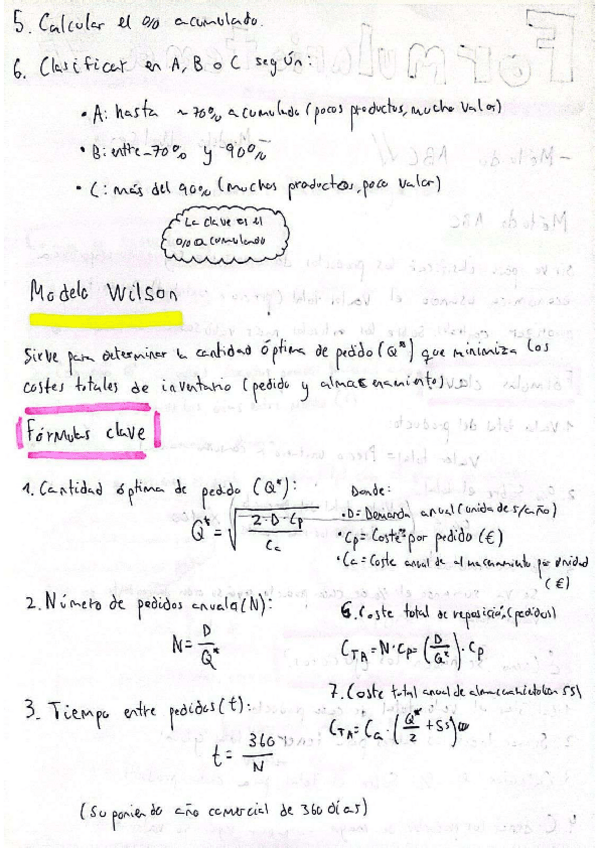 5. Calcular el % acumulado.
6. Clasificar en A, B o C según:
• A: hasta ~70% acumulado (pocos productos, mucho valor)
• B: entre ~70% y 90%
• C: más del 90% (muchos productos, poco valor)
La clave es el
% acumulado
Modelo Wilson
Sirve para determinar la cantidad óptima de pedido (Q*) que minimiza los
costes totales de inventario (pedido y almacenamiento).
Fórmulas clave
1. Cantidad óptima de pedido (Q*):
Q* = √(2·D·Cp / Ca)
Donde:
• D = Demanda anual (unidades/año)
• Cp = Coste por pedido (€)
• Ca = Coste anual de almacenamiento por unidad
(€)
2. Número de pedidos anuales (N):
N = D / Q*
3. Tiempo entre pedidos (t):
t = 360 / N
(Suponiendo año comercial de 360 días)
6. Coste total de reposición (pedidos)
CTA = N·Cp = (D / Q*)·Cp
7. Coste total anual de almacenamiento (con SS)
CTA = Ca·(Q* / 2 + SS)